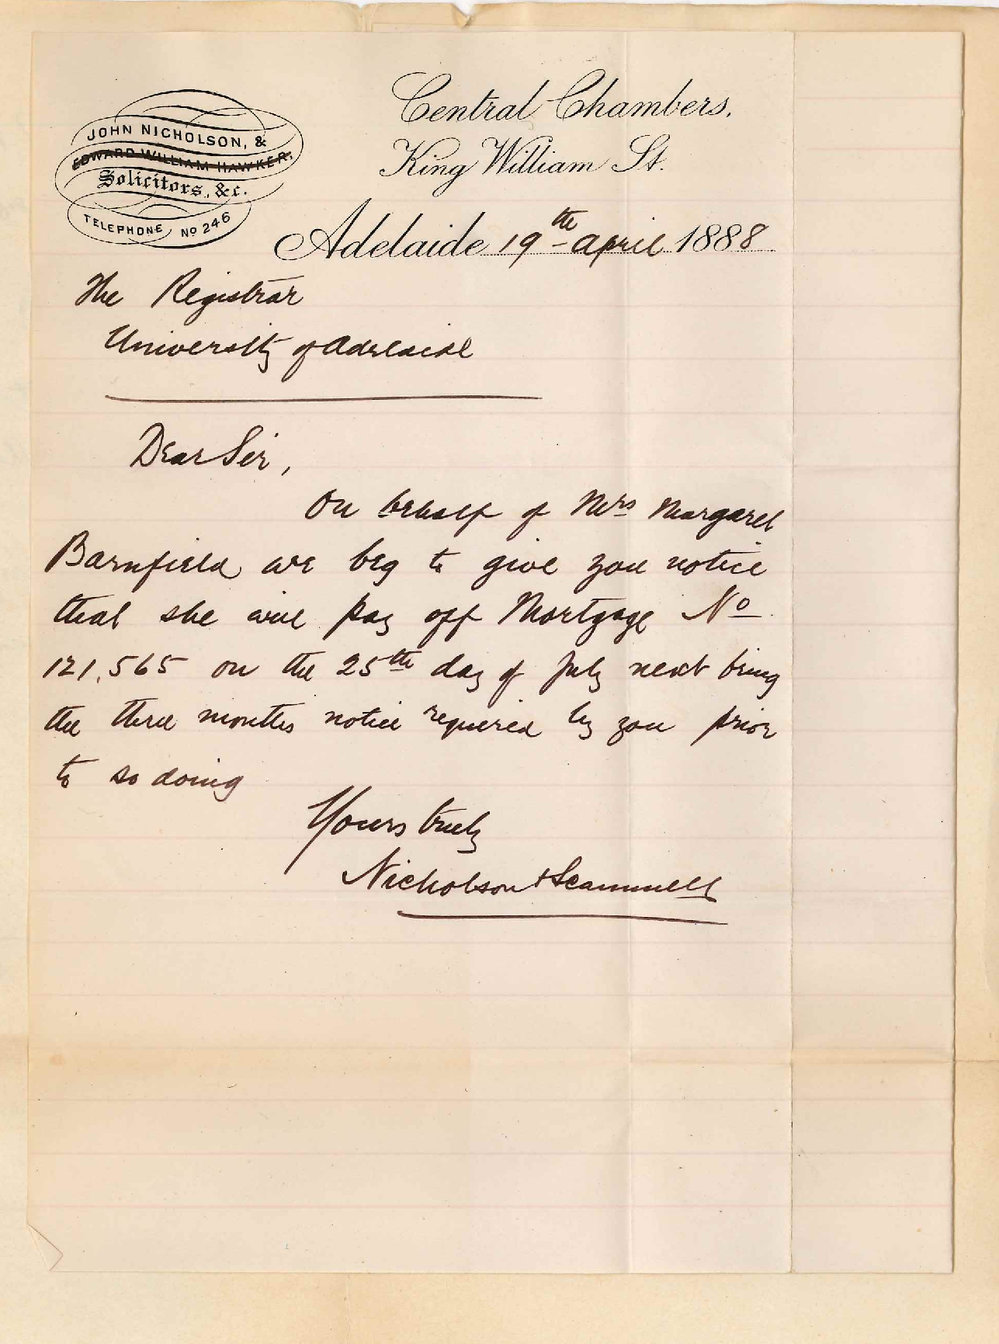 JOHN NICHOLSON, &
EDWARD WILLIAM HAWKER,
Solicitors, &c.
TELEPHONE No 246
Central Chambers,
King William St.
Adelaide 19th April 1888
The Registrar
University of Adelaide
Dear Sir,
On behalf of Mrs Margaret
Barnfield we beg to give you notice
that she will pay off Mortgage No
121,565 on the 25th day of July next being
the three months notice required by you prior
to so doing
Yours truly
Nicholson & Scammell